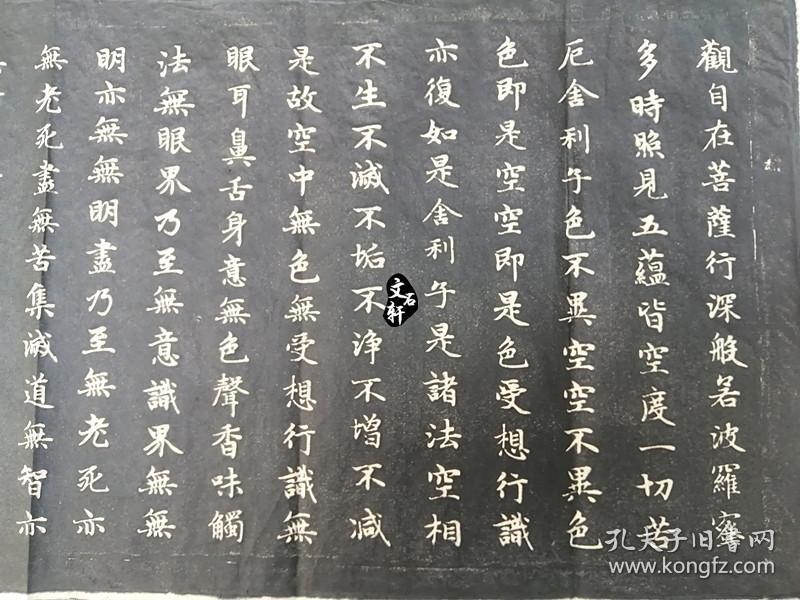 觀自在菩薩行深般若波羅蜜
多時照見五蘊皆空度一切苦
厄舍利子色不異空空不異色
色即是空空即是色受想行識
亦復如是舍利子是諸法空相
不生不滅不垢不淨不增不減
是故空中無色無受想行識無
眼耳鼻舌身意無色聲香味觸
法無眼界乃至無意識界無無
明亦無無明盡乃至無老死亦
無老死盡無苦集滅道無智亦
文石軒
孔夫子旧书网
www.kongfz.com